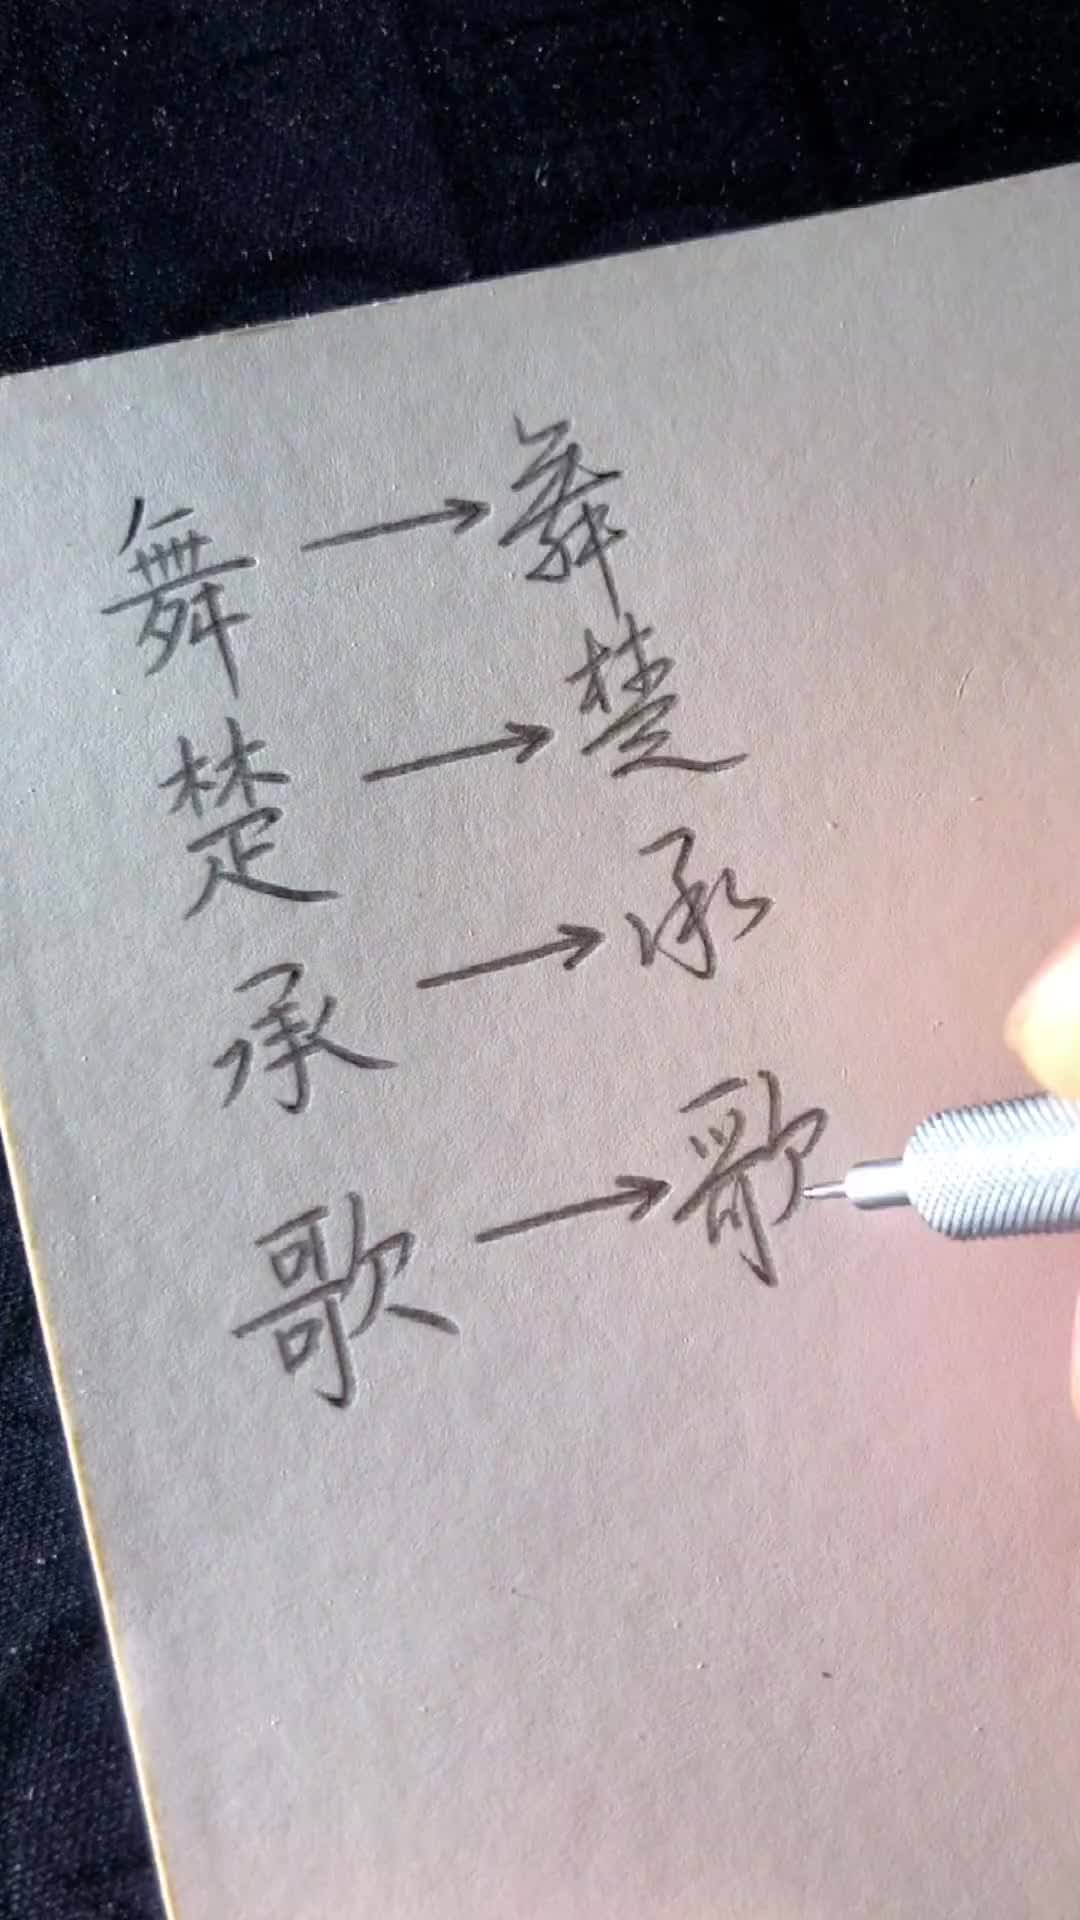 舞→舞
楚→楚
承→承
歌→歌